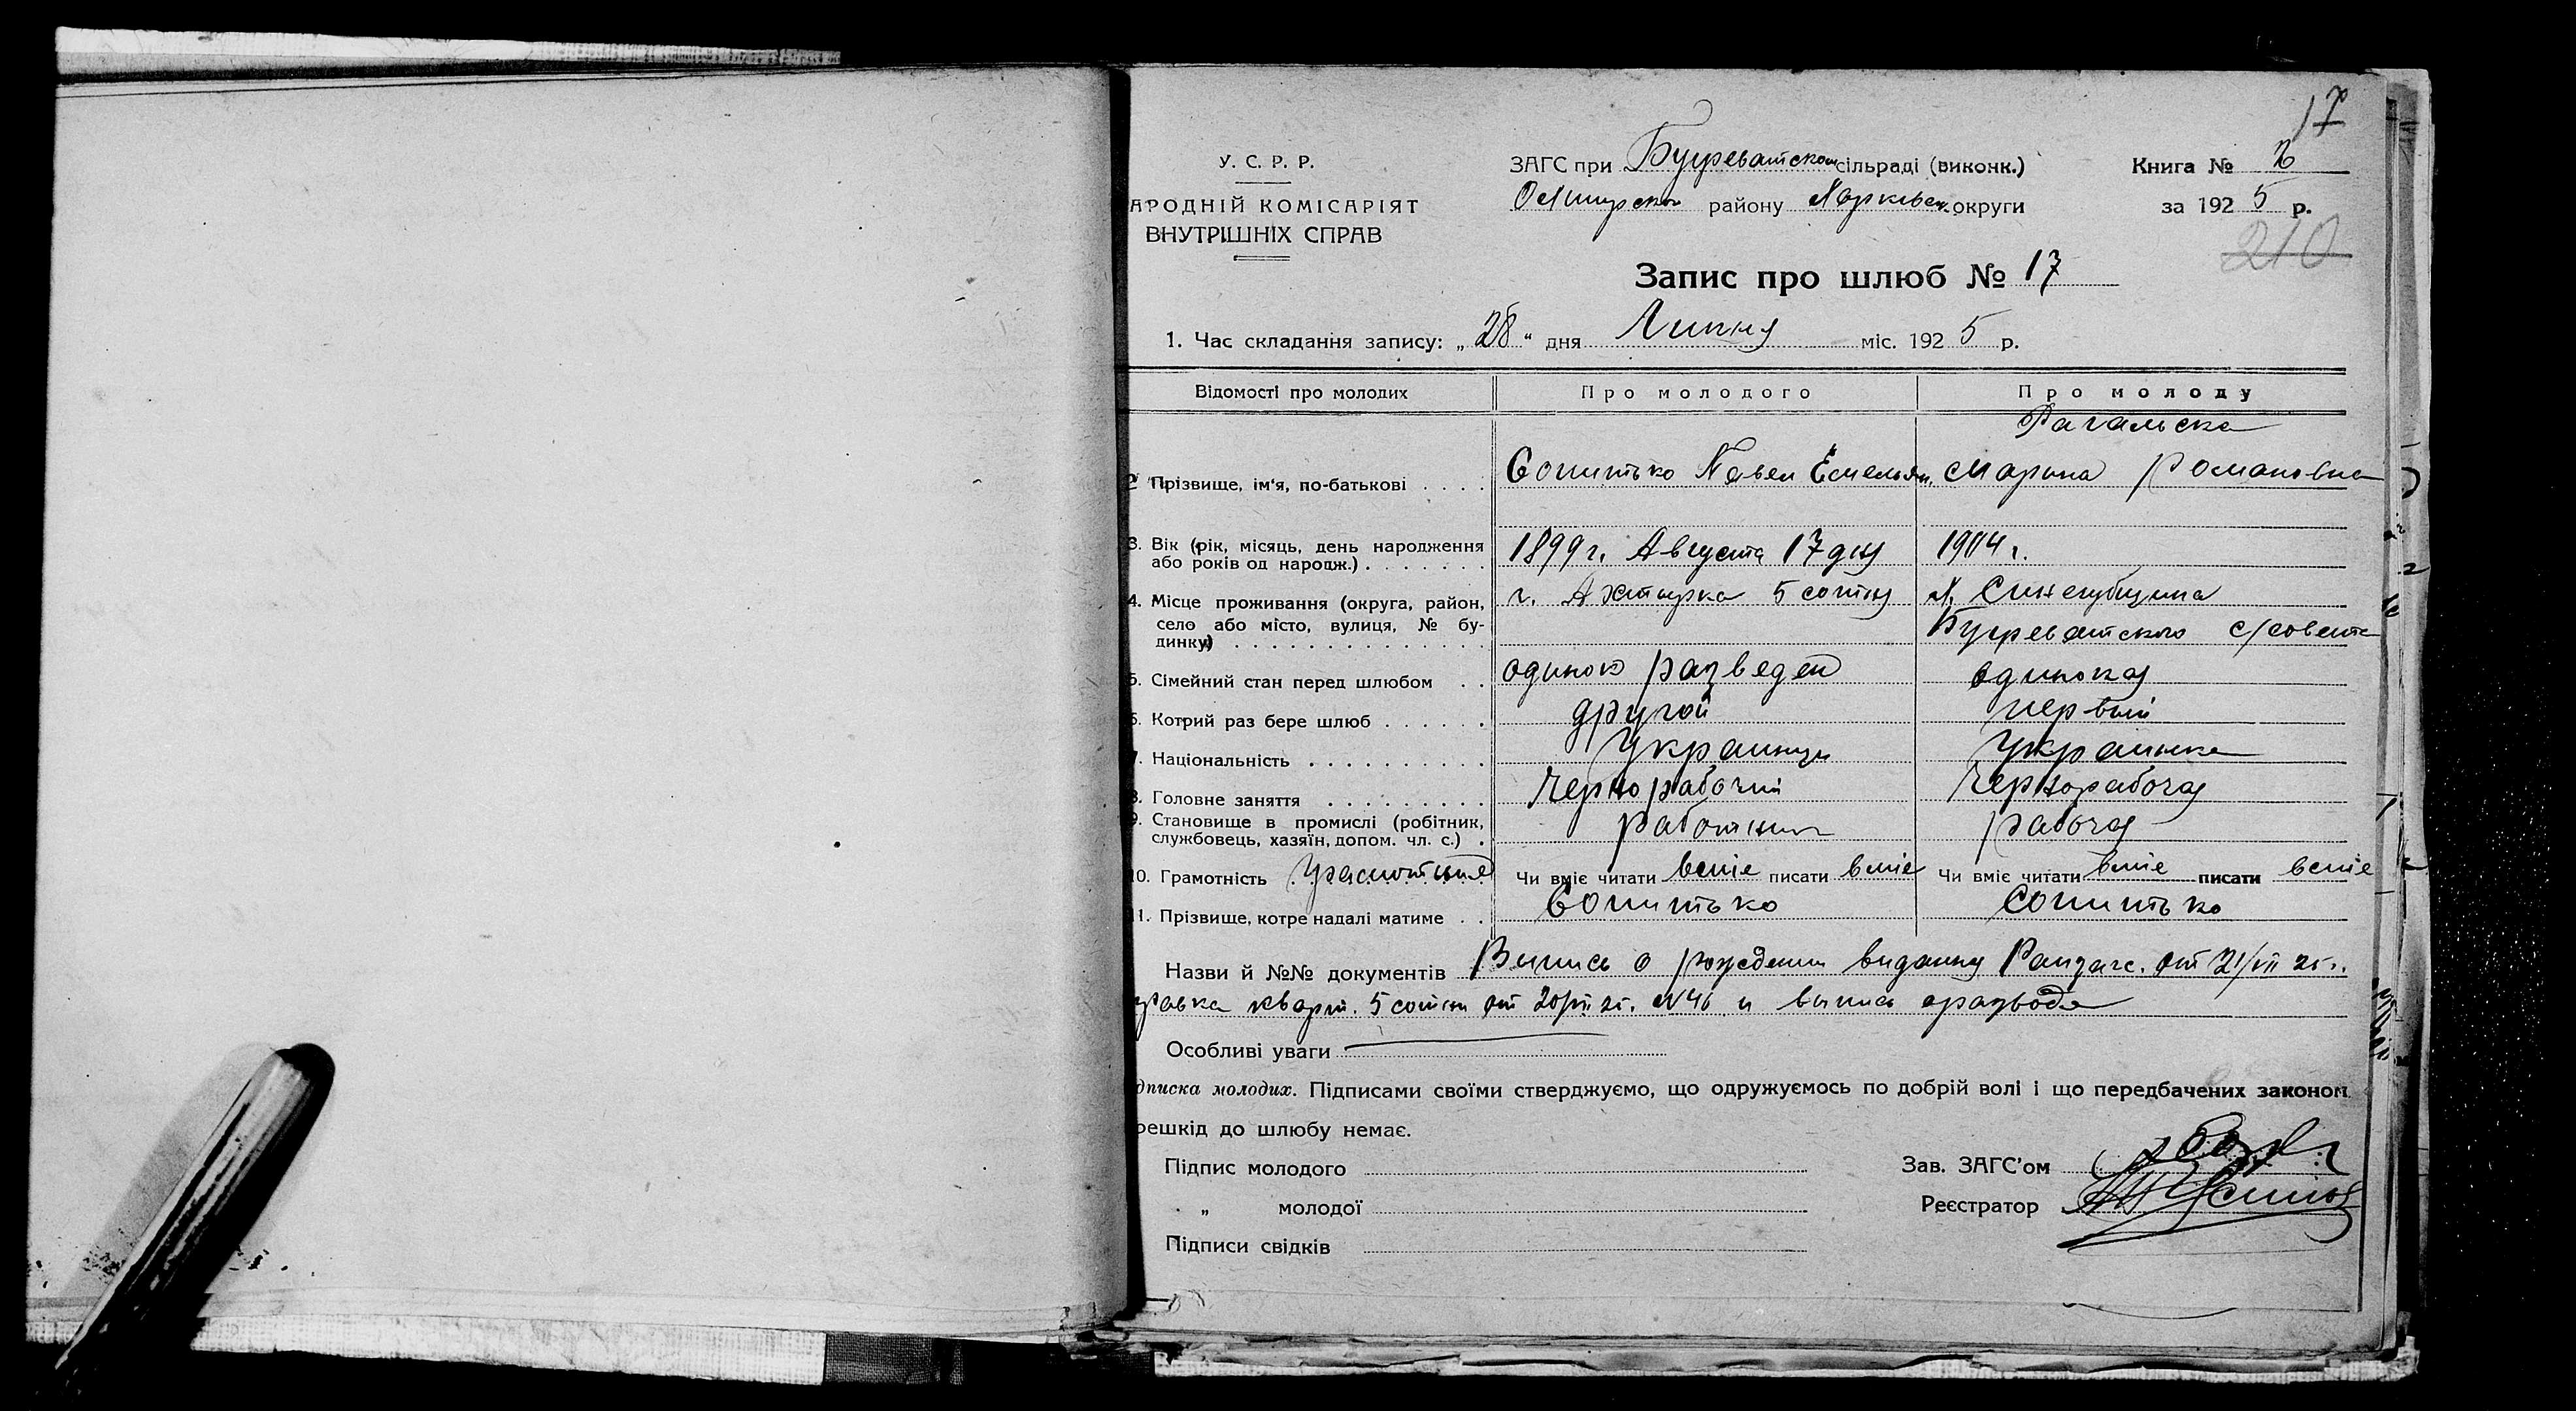 17
У. С. Р. Р.
АРОДНІЙ КОМІСАРІЯТ
ВНУТРІШНІХ СПРАВ
ЗАГС при Бугреватском сільраді (виконк.)
району Харківськ округи
Книга №
за 1925 р.
210
Запис про шлюб № 17
1. Час складання запису: „28“ дня Липня міс. 1925 р.
Відомості про молодих Про молодого Про молоду
Рагальска
2 Прізвище, ім'я, по-батькові Сопитько Павел Емельян. Марына Романовна
3. Вік (рік, місяць, день народження 1899 г. Августа 17 дня 1904 г.
або років од народж.)
4. Місце проживання (округа, район, г. Ахтырка 5 сотня х. Синегубщина
село або місто, вулиця, № бу- Бугреватского с/совета
динку)
5. Сімейний стан перед шлюбом одинок разведен одинокая
6. Котрий раз бере шлюб другой первый
7. Національність Украинец Украинка
8. Головне заняття Чернорабочий Чернорабочая
9. Становище в промислі (робітник, работник рабочая
службовець, хазяїн, допом. чл. с.)
10. Грамотність Грамотные Чи вміє читати вміє писати вміє Чи вміє читати вміє писати вміє
11. Прізвище, котре надалі матиме Сопитько Сопитько
Назви й №№ документів Выпись о рождении выданну Райзагс. от 21/VII 25 г.
равка кварт. 5 сотни от 20/VII 25. N46 и выпись о разводе
Особливі уваги
дписка молодих. Підписами своїми стверджуємо, що одружуємось по добрій волі і що передбачених законом
решкід до шлюбу немає.
Підпис молодого
Зав. ЗАГС'ом
„ молодої
Реєстратор
Підписи свідків